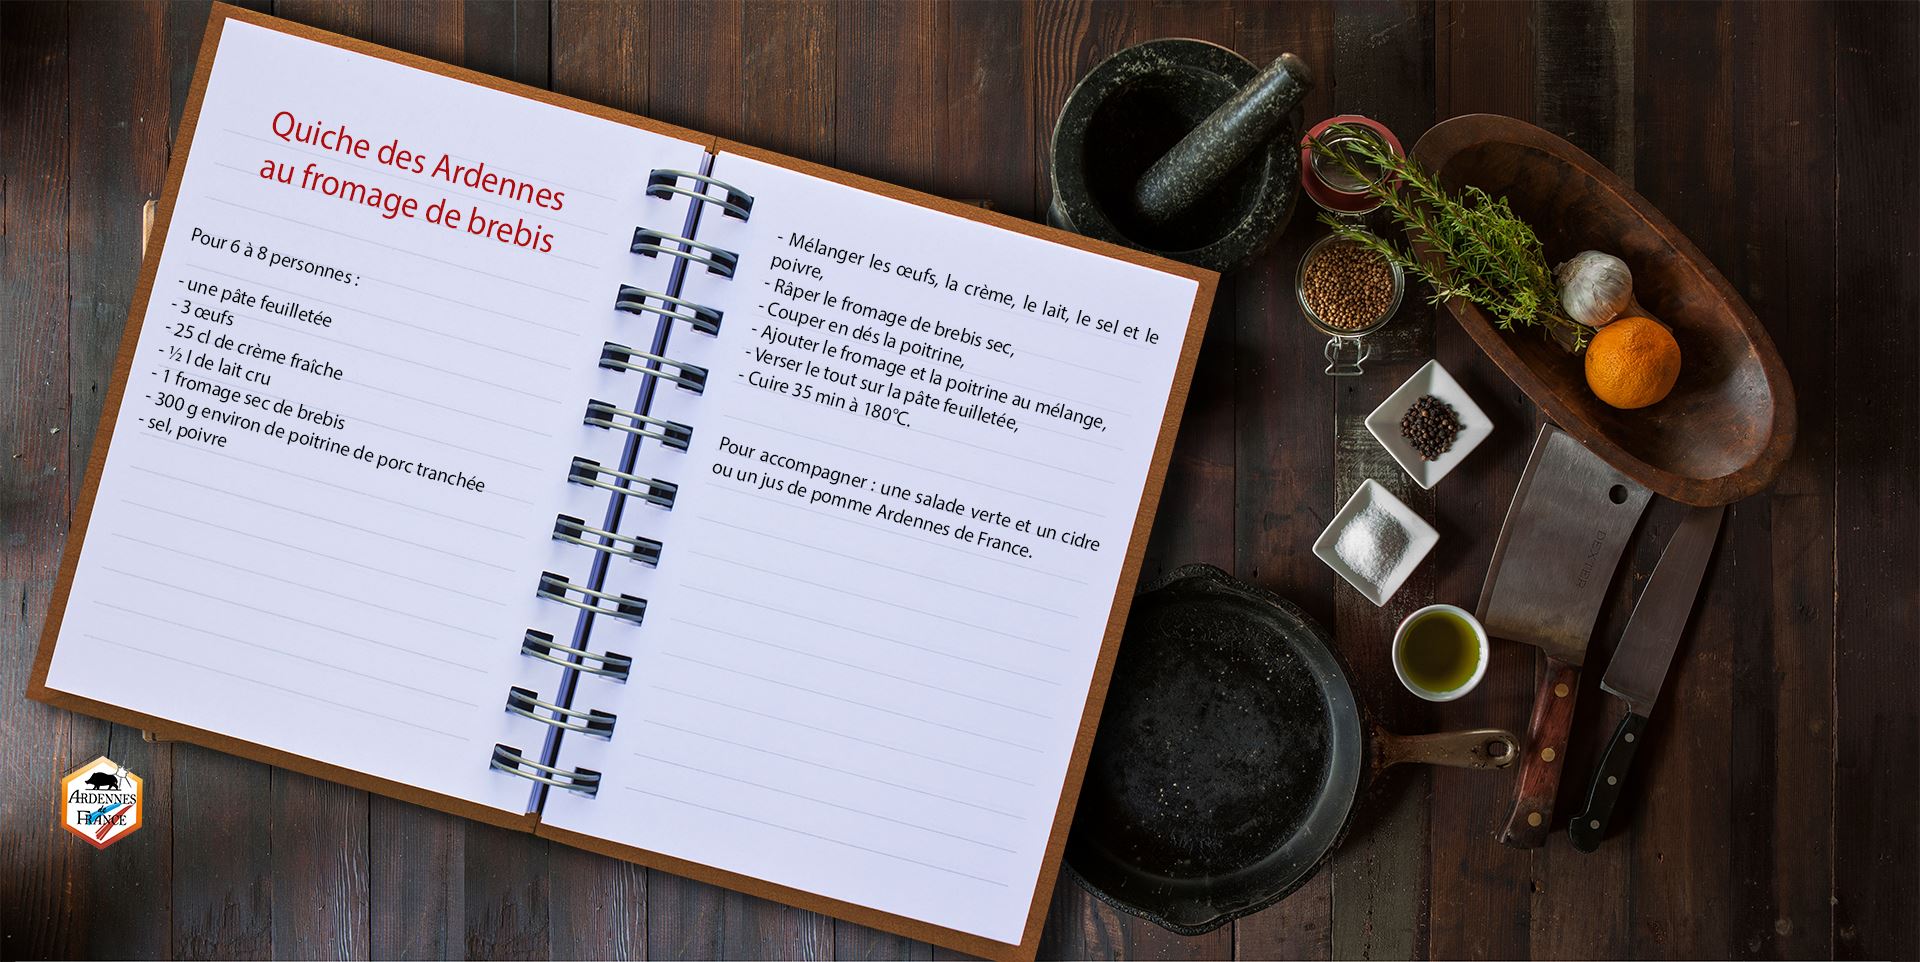 Quiche des Ardennes
au fromage de brebis
Pour 6 à 8 personnes :
- une pâte feuilletée
- 3 œufs
- 25 cl de crème fraîche
- ½ l de lait cru
- 1 fromage sec de brebis
- 300 g environ de poitrine de porc tranchée
- sel, poivre
- Mélanger les œufs, la crème, le lait, le sel et le
poivre,
- Râper le fromage de brebis sec,
- Couper en dés la poitrine,
- Ajouter le fromage et la poitrine au mélange,
- Verser le tout sur la pâte feuilletée,
- Cuire 35 min à 180°C.
Pour accompagner : une salade verte et un cidre
ou un jus de pomme Ardennes de France.
DEXTER
ARDENNES
de
FRANCE